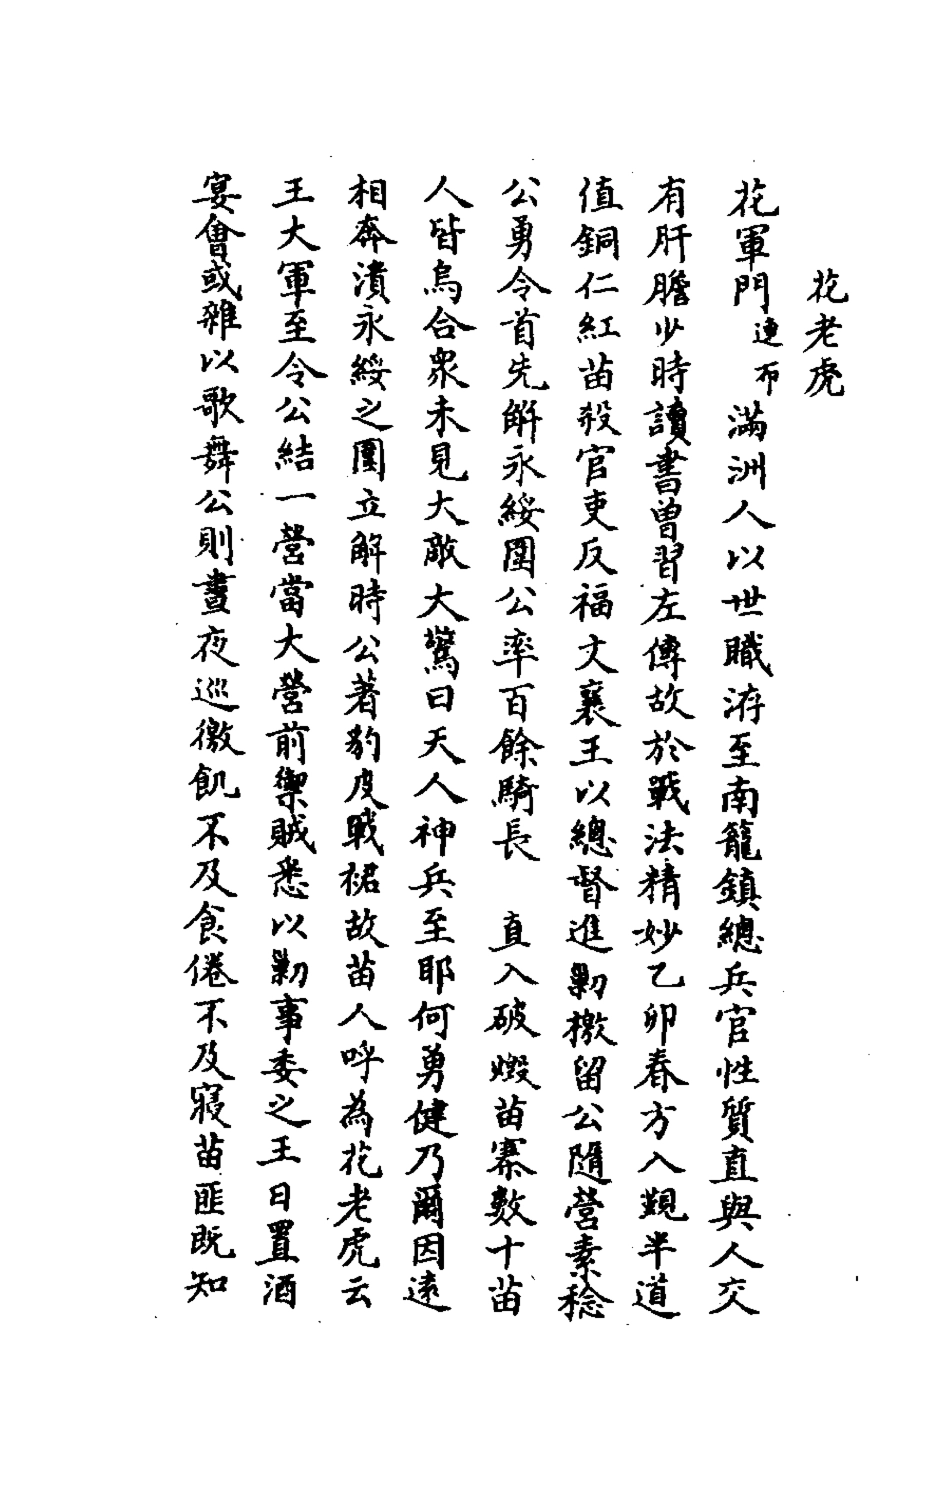 花老虎
花軍門連布滿洲人以世職洊至南籠鎮總兵官性質直與人交
有肝膽少時讀書曾習左傳故於戰法精妙乙卯春方入覲半道
值銅仁紅苗殺官吏反福文襄王以總督進剿檄留公隨營素稔
公勇令首先解永綏圍公率百餘騎長 直入破燬苗寨數十苗
人皆烏合衆未見大敵大驚曰天人神兵至耶何勇健乃爾因遠
相奔潰永綏之圍立解時公著豹皮戰裙故苗人呼為花老虎云
王大軍至令公結一營當大營前禦賊悉以剿事委之王日置酒
宴會或雜以歌舞公則晝夜巡徼飢不及食倦不及寢苗匪既知